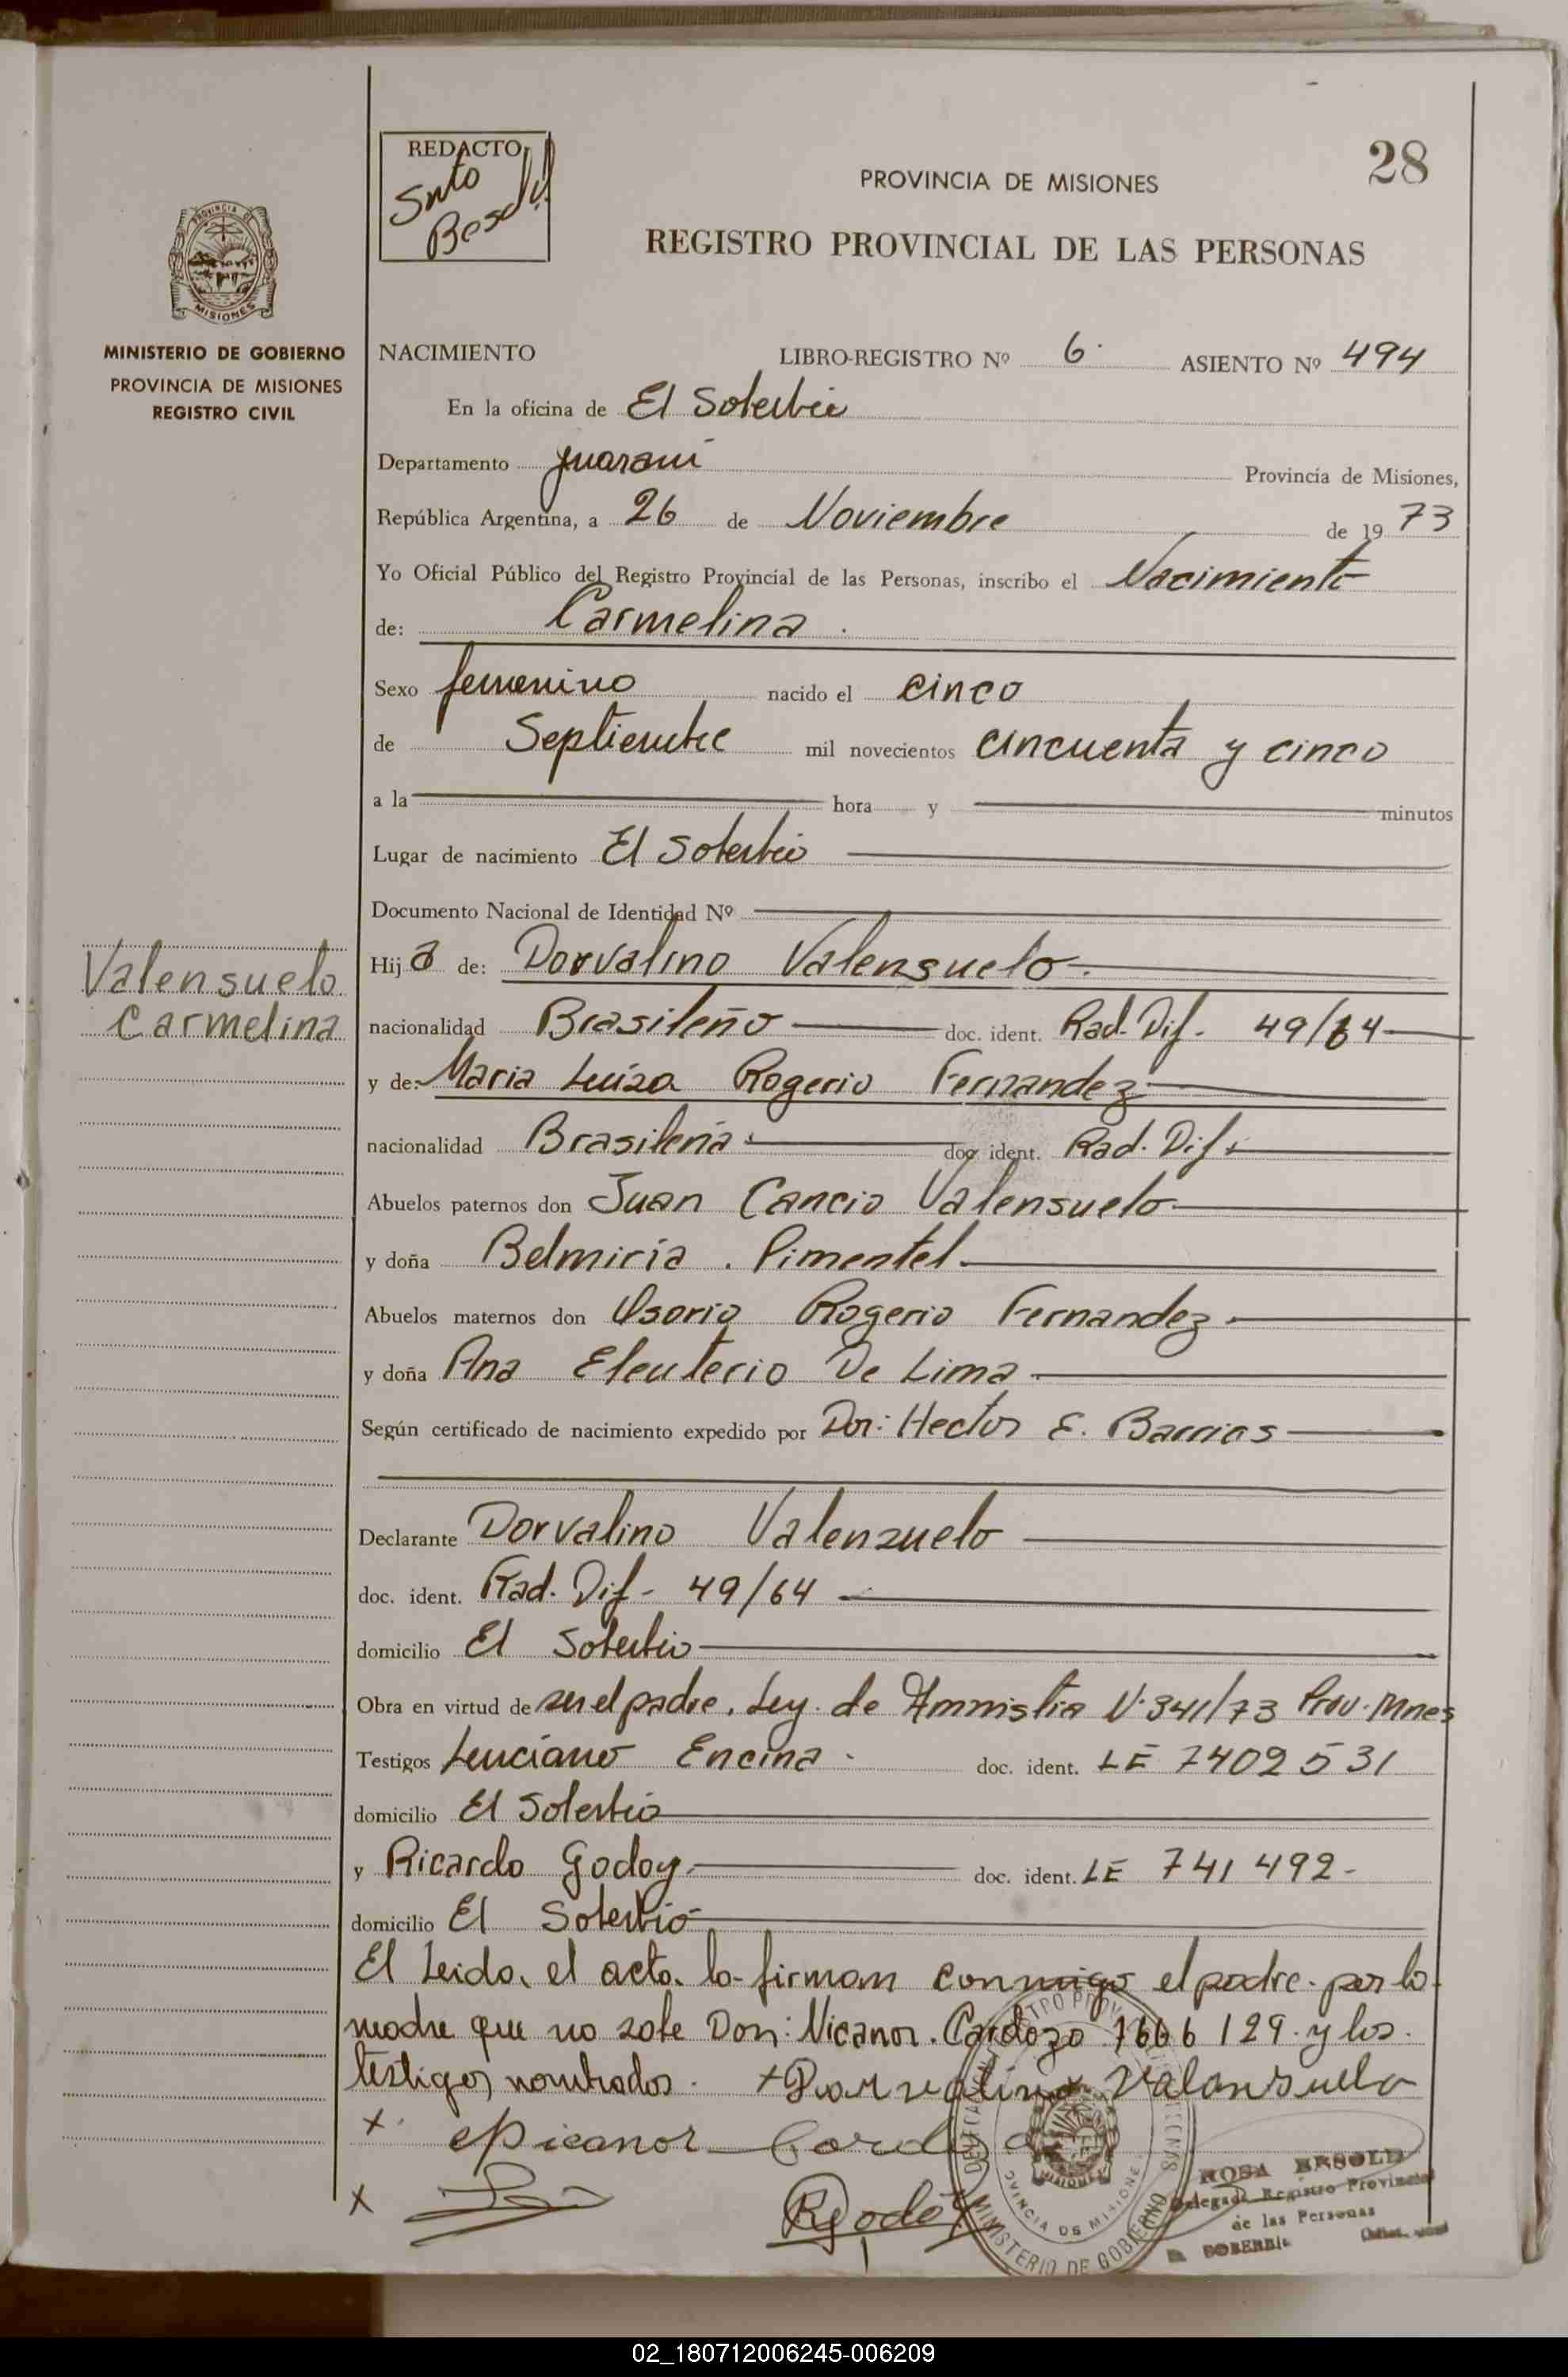 28
REDACTO
PROVINCIA DE MISIONES
REGISTRO PROVINCIAL DE LAS PERSONAS
PROVINCIA DE
MISIONES
MINISTERIO DE GOBIERNO
PROVINCIA DE MISIONES
REGISTRO CIVIL
NACIMIENTO LIBRO-REGISTRO Nº 6 ASIENTO Nº 494
En la oficina de El Soberbio
Departamento Guaraní Provincia de Misiones,
República Argentina, a 26 de Noviembre de 19 73
Yo Oficial Público del Registro Provincial de las Personas, inscribo el Nacimiento
de: Carmelina.
Sexo femenino nacido el cinco
de Septiembre mil novecientos cincuenta y cinco
a la hora y minutos
Lugar de nacimiento El Soberbio
Documento Nacional de Identidad Nº
Valensuelo
Carmelina
Hija de: Dorvalino Valensuelo.
nacionalidad Brasileño doc. ident. Rad. Dif. 49/64
y de: Maria Luiza Rogerio Fernandez
nacionalidad Brasileña doc. ident. Rad. Dif.
Abuelos paternos don Juan Cancio Valensuelo
y doña Belmiria. Pimentel
Abuelos maternos don Osorio Rogerio Fernandez
y doña Ana Eleuterio De Lima
Según certificado de nacimiento expedido por Dor: Hector E. Barrios
Declarante Dorvalino Valenzuelo
doc. ident. Rad. Dif- 49/64
domicilio El Soberbio
Obra en virtud de ser el padre. Ley. de Amnistia N. 341/73 Prov. Mnes
Testigos Luciano Encina. doc. ident. LE 7409531
domicilio El Soberbio
y Ricardo Godoy doc. ident. LE 741492-
domicilio El Soberbio
El Leido, el acta. lo firman conmigo el padre. por la
madre que no sabe Don: Nicanor. Cardozo 7666129. y los
testigos nombrados. + Dorvalino Valansuelo
x. Nicanor Cardozo
x
RGodoy
ROSA BESOLD
Delegada Registro Provincial
de las Personas
EL SOBERBIO
MINISTERIO DE GOBIERNO
PROVINCIA DE MISIONES
02_180712006245-006209